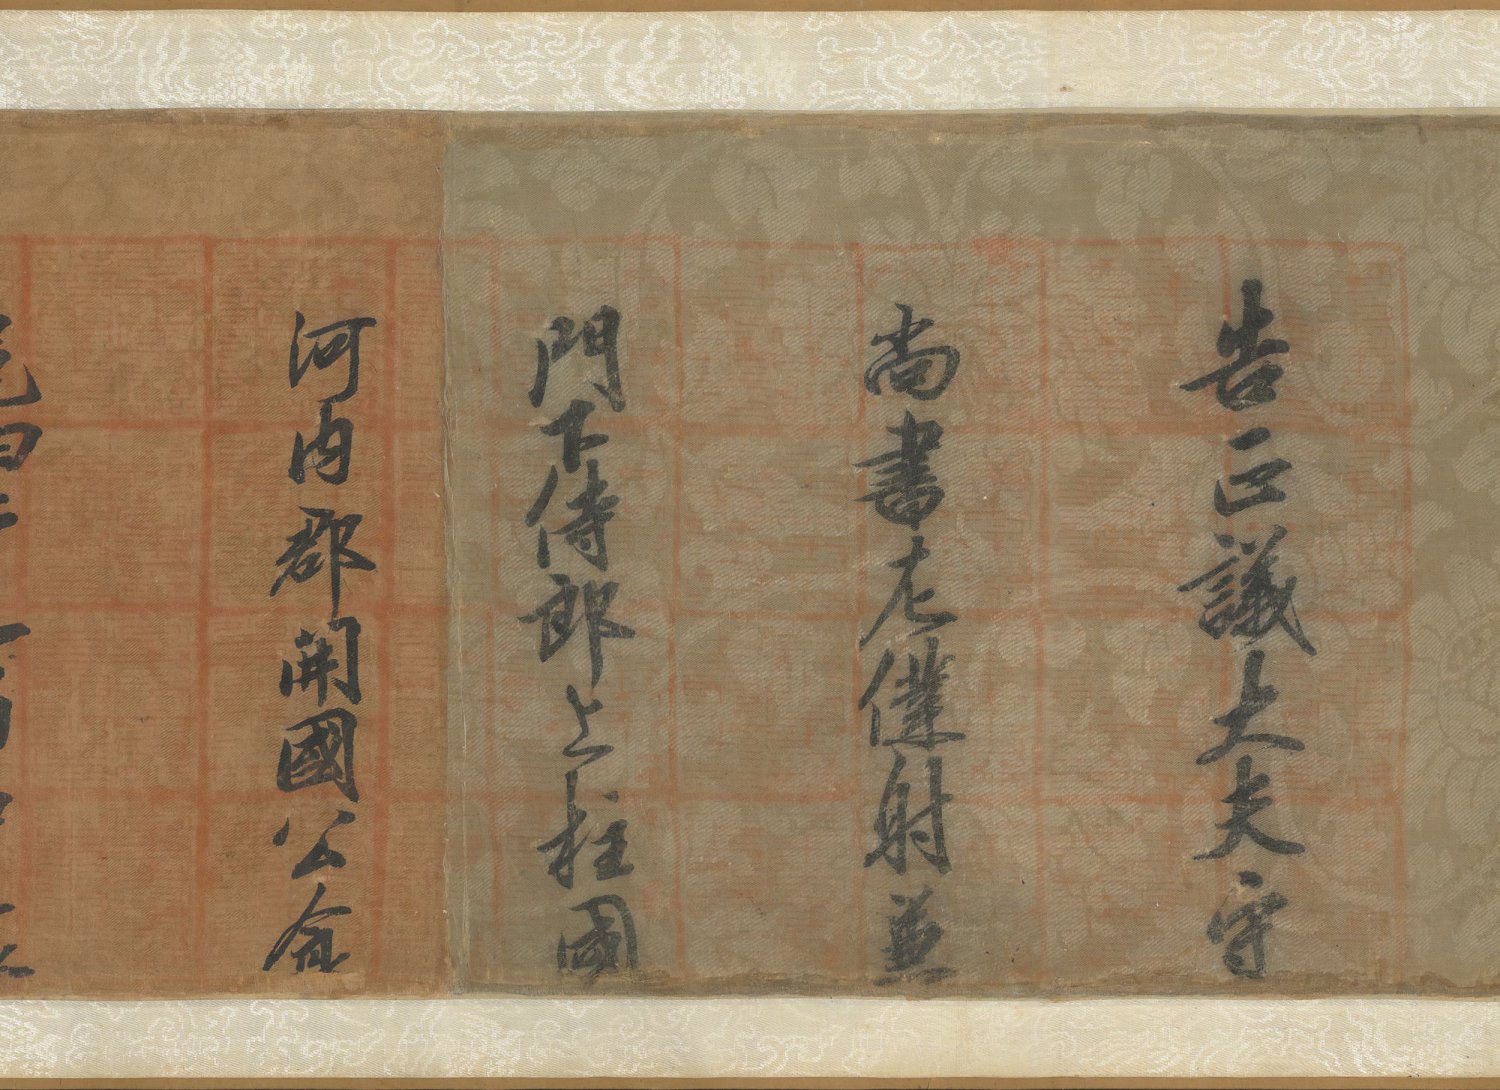 告正議大夫守
尚書左僕射兼
門下侍郎上柱國
河内郡開國公食